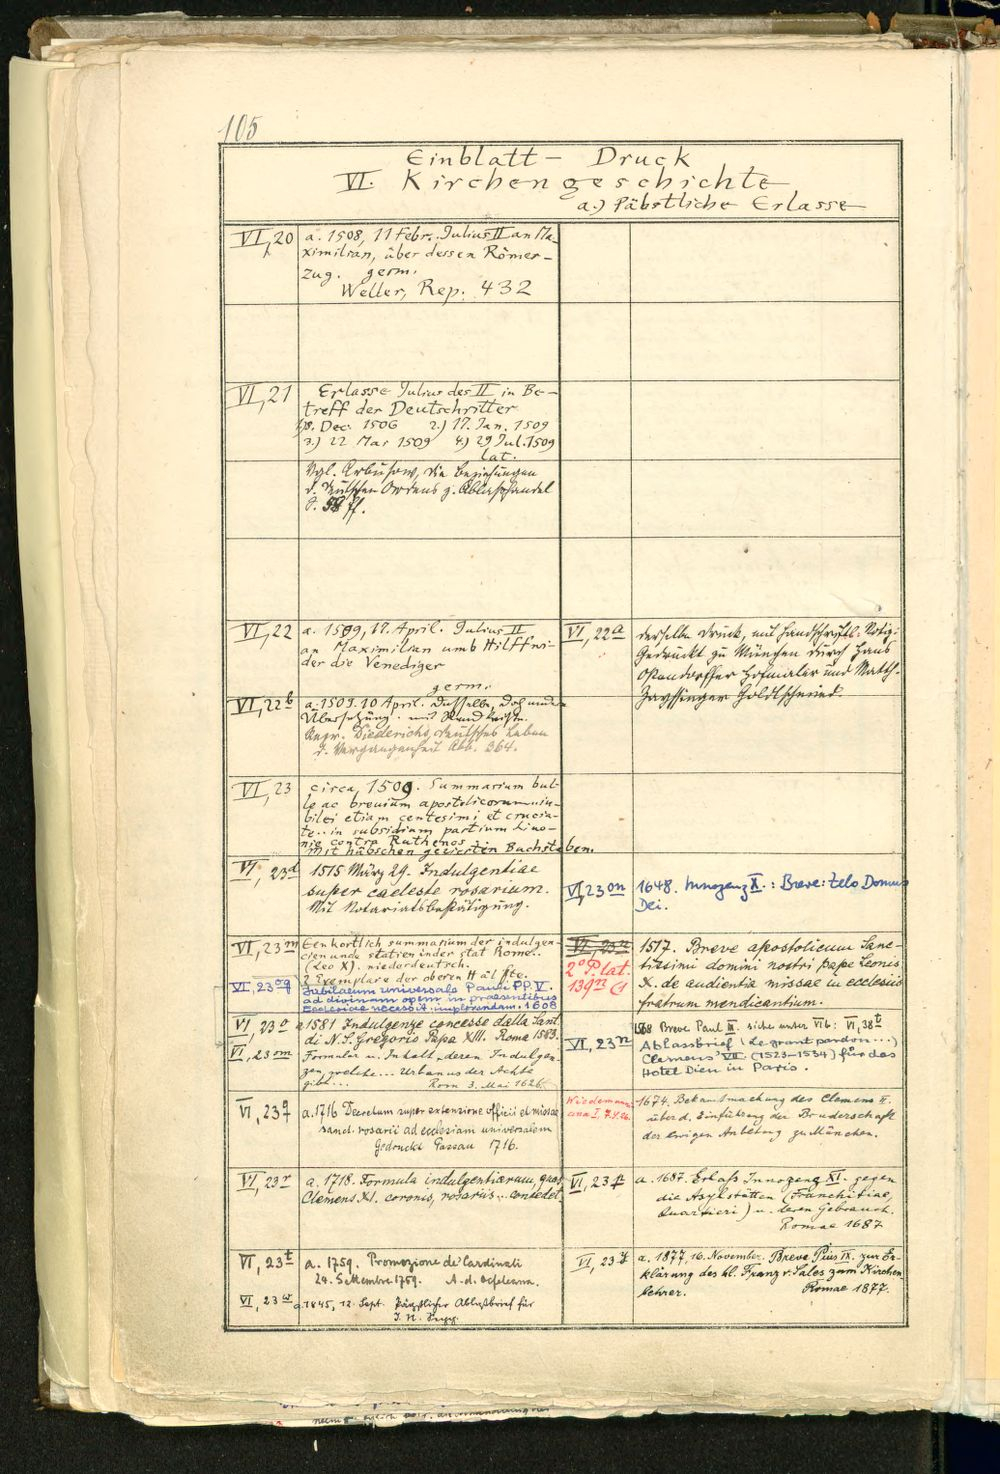 105
Einblatt- Druck
VI. Kirchengeschichte
a.) Päbstliche Erlasse
VI,20
a. 1508, 11 Febr. Julius II an Ma-
ximilian, über dessen Römer-
zug. germ.
Weller, Rep. 432
VI,21
Erlasse Julius des II in Be-
treff der Deutschritter
1) 8. Dec. 1506 2.) 17. Jan. 1509
3.) 22 Mai 1509 4.) 29 Jul. 1509
lat.
Vgl. Arbusow, die Beziehungen
d. Deutschen Ordens z. Ablaßhandel
S. 58 ff.
VI,22
a. 1509, 17. April. Julius II
an Maximilian umb Hilff wi-
der die Venediger
germ.
VI,22a
derselbe Druck, mit handschriftl. Notiz:
Gedruckt zu München durch Hans
Ostendorffer Hofmaler und Matth.
Zayssinger Goldtschmied
VI,22b
a. 1509. 10 April. Dasselbe, Doch andere
Übersetzung. mit Randleiste.
Repr. Diederichs, Deutsches Leben
d. Vergangenheit Abb. 364.
VI,23
circa 1509. Summarium bul-
le ac brevium apostolicorum iu-
bilei etiam centesimi et crucia-
te.. in subsidium partium Livo-
nie contra Ruthenos
Mit hübschen gezierten Buchstaben.
VI, 23d
1515 März 29. Indulgentiae
super caeleste rosarium.
Mit Notariatsbestätigung.
VI,23on
1648. Innozenz X.: Breve: Zelo Domus
Dei.
VI, 23m
Een kortlich summarium der indulgen-
cien unde statien inder stat Rome..
(Leo X). niederdeutsch.
2 Exemplare der oberen Hälfte.
VI, 23n
2° P. lat.
1517. Breve apostolicum Sanc-
tissimi domini nostri pape Leonis
X. de audientia missae in ecclesiis
fratrum mendicantium.
VI, 23og
Jubilaeum universale Pauli PP. V.
ad divinam opem in praesentibus
Ecclesiae necessit. implorandam. 1608
VI, 23o
a 1581 Indulgenze concesse dalla Sant.
di N. S. Gregorio Papa XIII. Roma 1583.
VI, 23om
Formular u. Inhalt deren Indulgen-
zen, welche... Urbanus der Achte
gibt... Rom 3. Mai 1626.
VI, 23n
1568 Breve Paul III. siehe unter VIb: VI,38t
Ablassbrief (Le grant pardon...)
Clemens' VII (1523-1534) für das
Hotel Dieu in Paris.
VI, 23q
a. 1716 Decretum super extensione officii et missae
sanct. rosarii ad ecclesiam universalem
Gedruckt Passau 1716.
1674. Bekanntmachung des Clemens X.
über d. Einführung der Bruderschaft
der ewigen Anbetung zu München.
VI, 23r
a. 1718. Formula indulgentiarum, quas
Clemens XI. coronis, rosariis... concedet
VI, 23p
a. 1687. Erlaß Innozenz XI. gegen
die Asylstätten (Franchitiae,
Quartieri) u. deren Gebrauch.
Romae 1687
VI, 23t
a. 1759. Promozione de' Cardinali
24. Settembre 1759. A. d. Oefeleana.
a. 1877, 16. November. Breve Pius IX. zur Er-
klärung des hl. Franz v. Sales zum Kirchen-
lehrer. Romae 1877.
VI, 23w
a. 1845, 12. Sept. Päpstlicher Ablaßbrief für